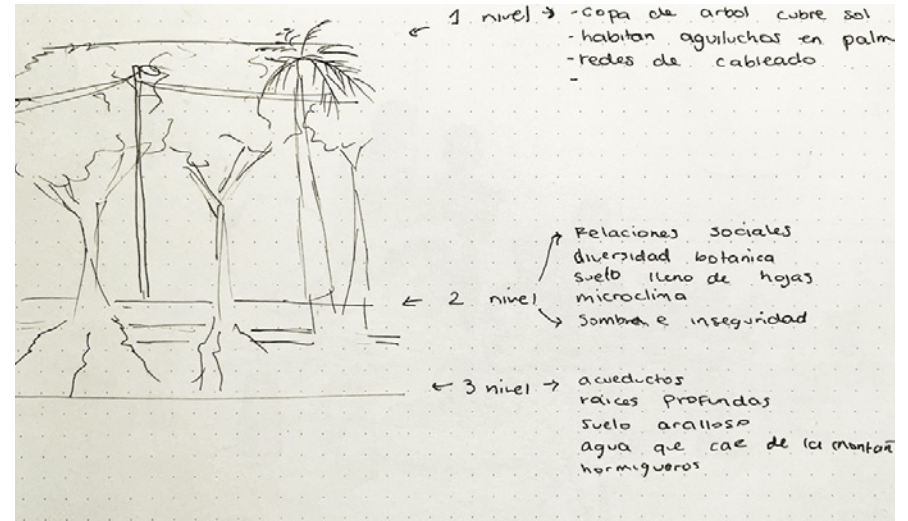 1 nivel → - Copa de arbol cubre sol
- habitan aguiluchos en palm
- redes de cableado
-
← 2 nivel
Relaciones sociales
diversidad botanica
suelo lleno de hojas
microclima
Sombra e inseguridad
← 3 nivel → acueductos
raices profundas
suelo aralloso
agua que cae de la montañ
hormigueros